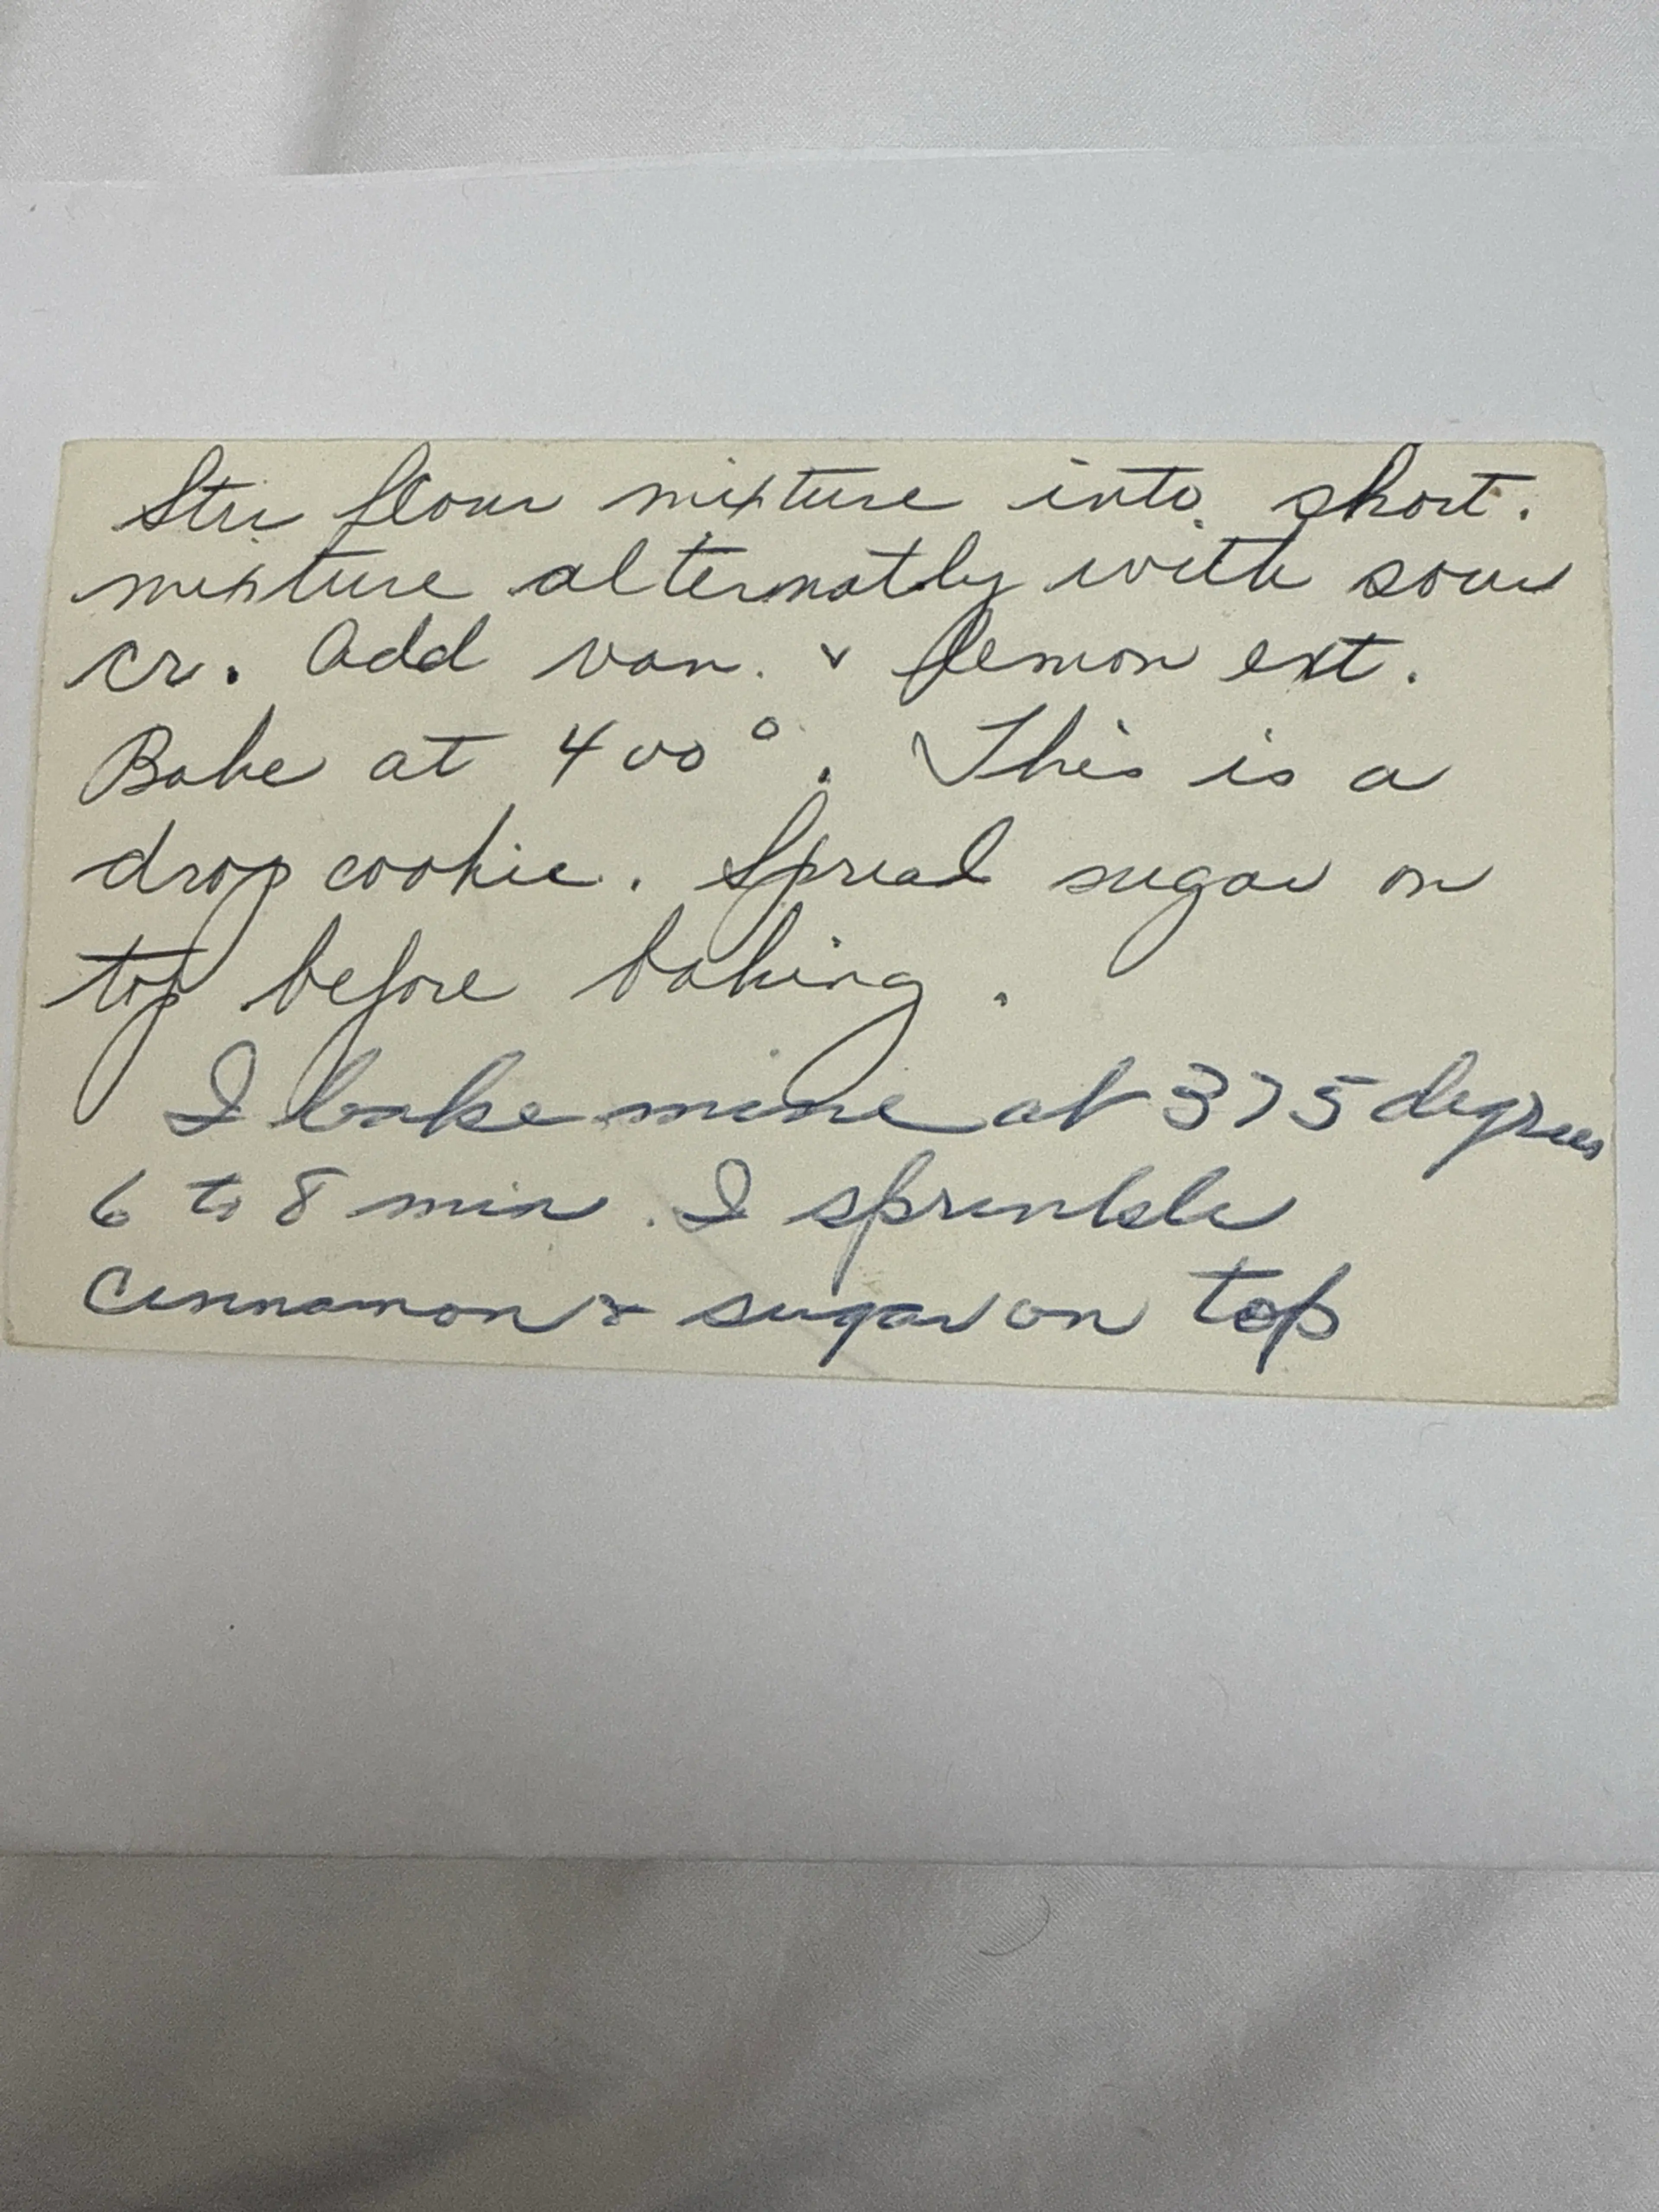 Stir flour mixture into short.
mixture alternatly with sour
cr. Add van. & lemon ext.
Bake at 400°. This is a
drop cookie. Spread sugar on
top before baking.
I bake mine at 375 degrees
6 to 8 min. I sprinkle
Cinnamon & sugar on top